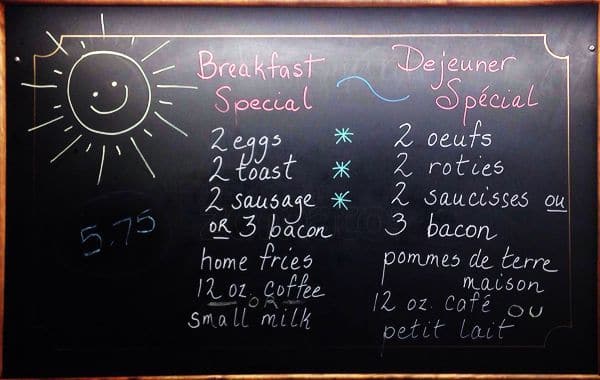 Breakfast
Special
2 eggs
2 toast
2 sausage
OR 3 bacon
home fries
12 oz. coffee
OR
small milk
5.75
Dejeuner
Spécial
2 oeufs
2 roties
2 saucisses ou
3 bacon
pommes de terre
maison
12 oz. café OU
petit lait